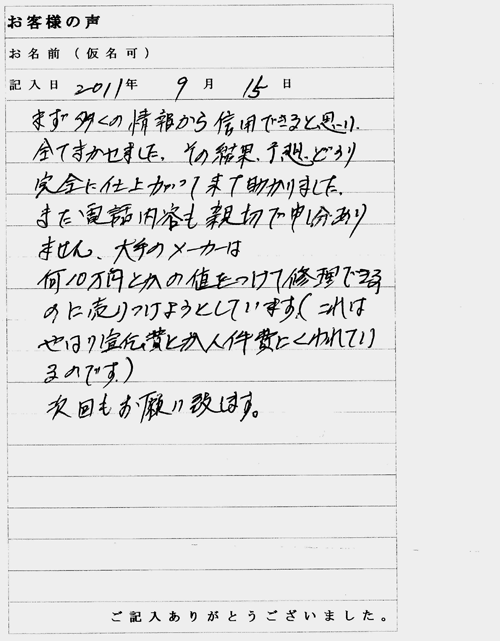 お客様の声
お名前(仮名可)
記入日 2011年 9月 15日
まず多くの情報から信用できると思い、
全てまかせました。その結果、予想どうり
完全に仕上がって来て助かりました。
また電話内容も親切で申し分あり
ません、大手のメーカーは
何10万円とかの値をつけて修理できる
のに売りつけようとしています。(これは
やはり宣伝費とか人件費にくわれてい
るのです。)
次回もお願い致します。
ご記入ありがとうございました。